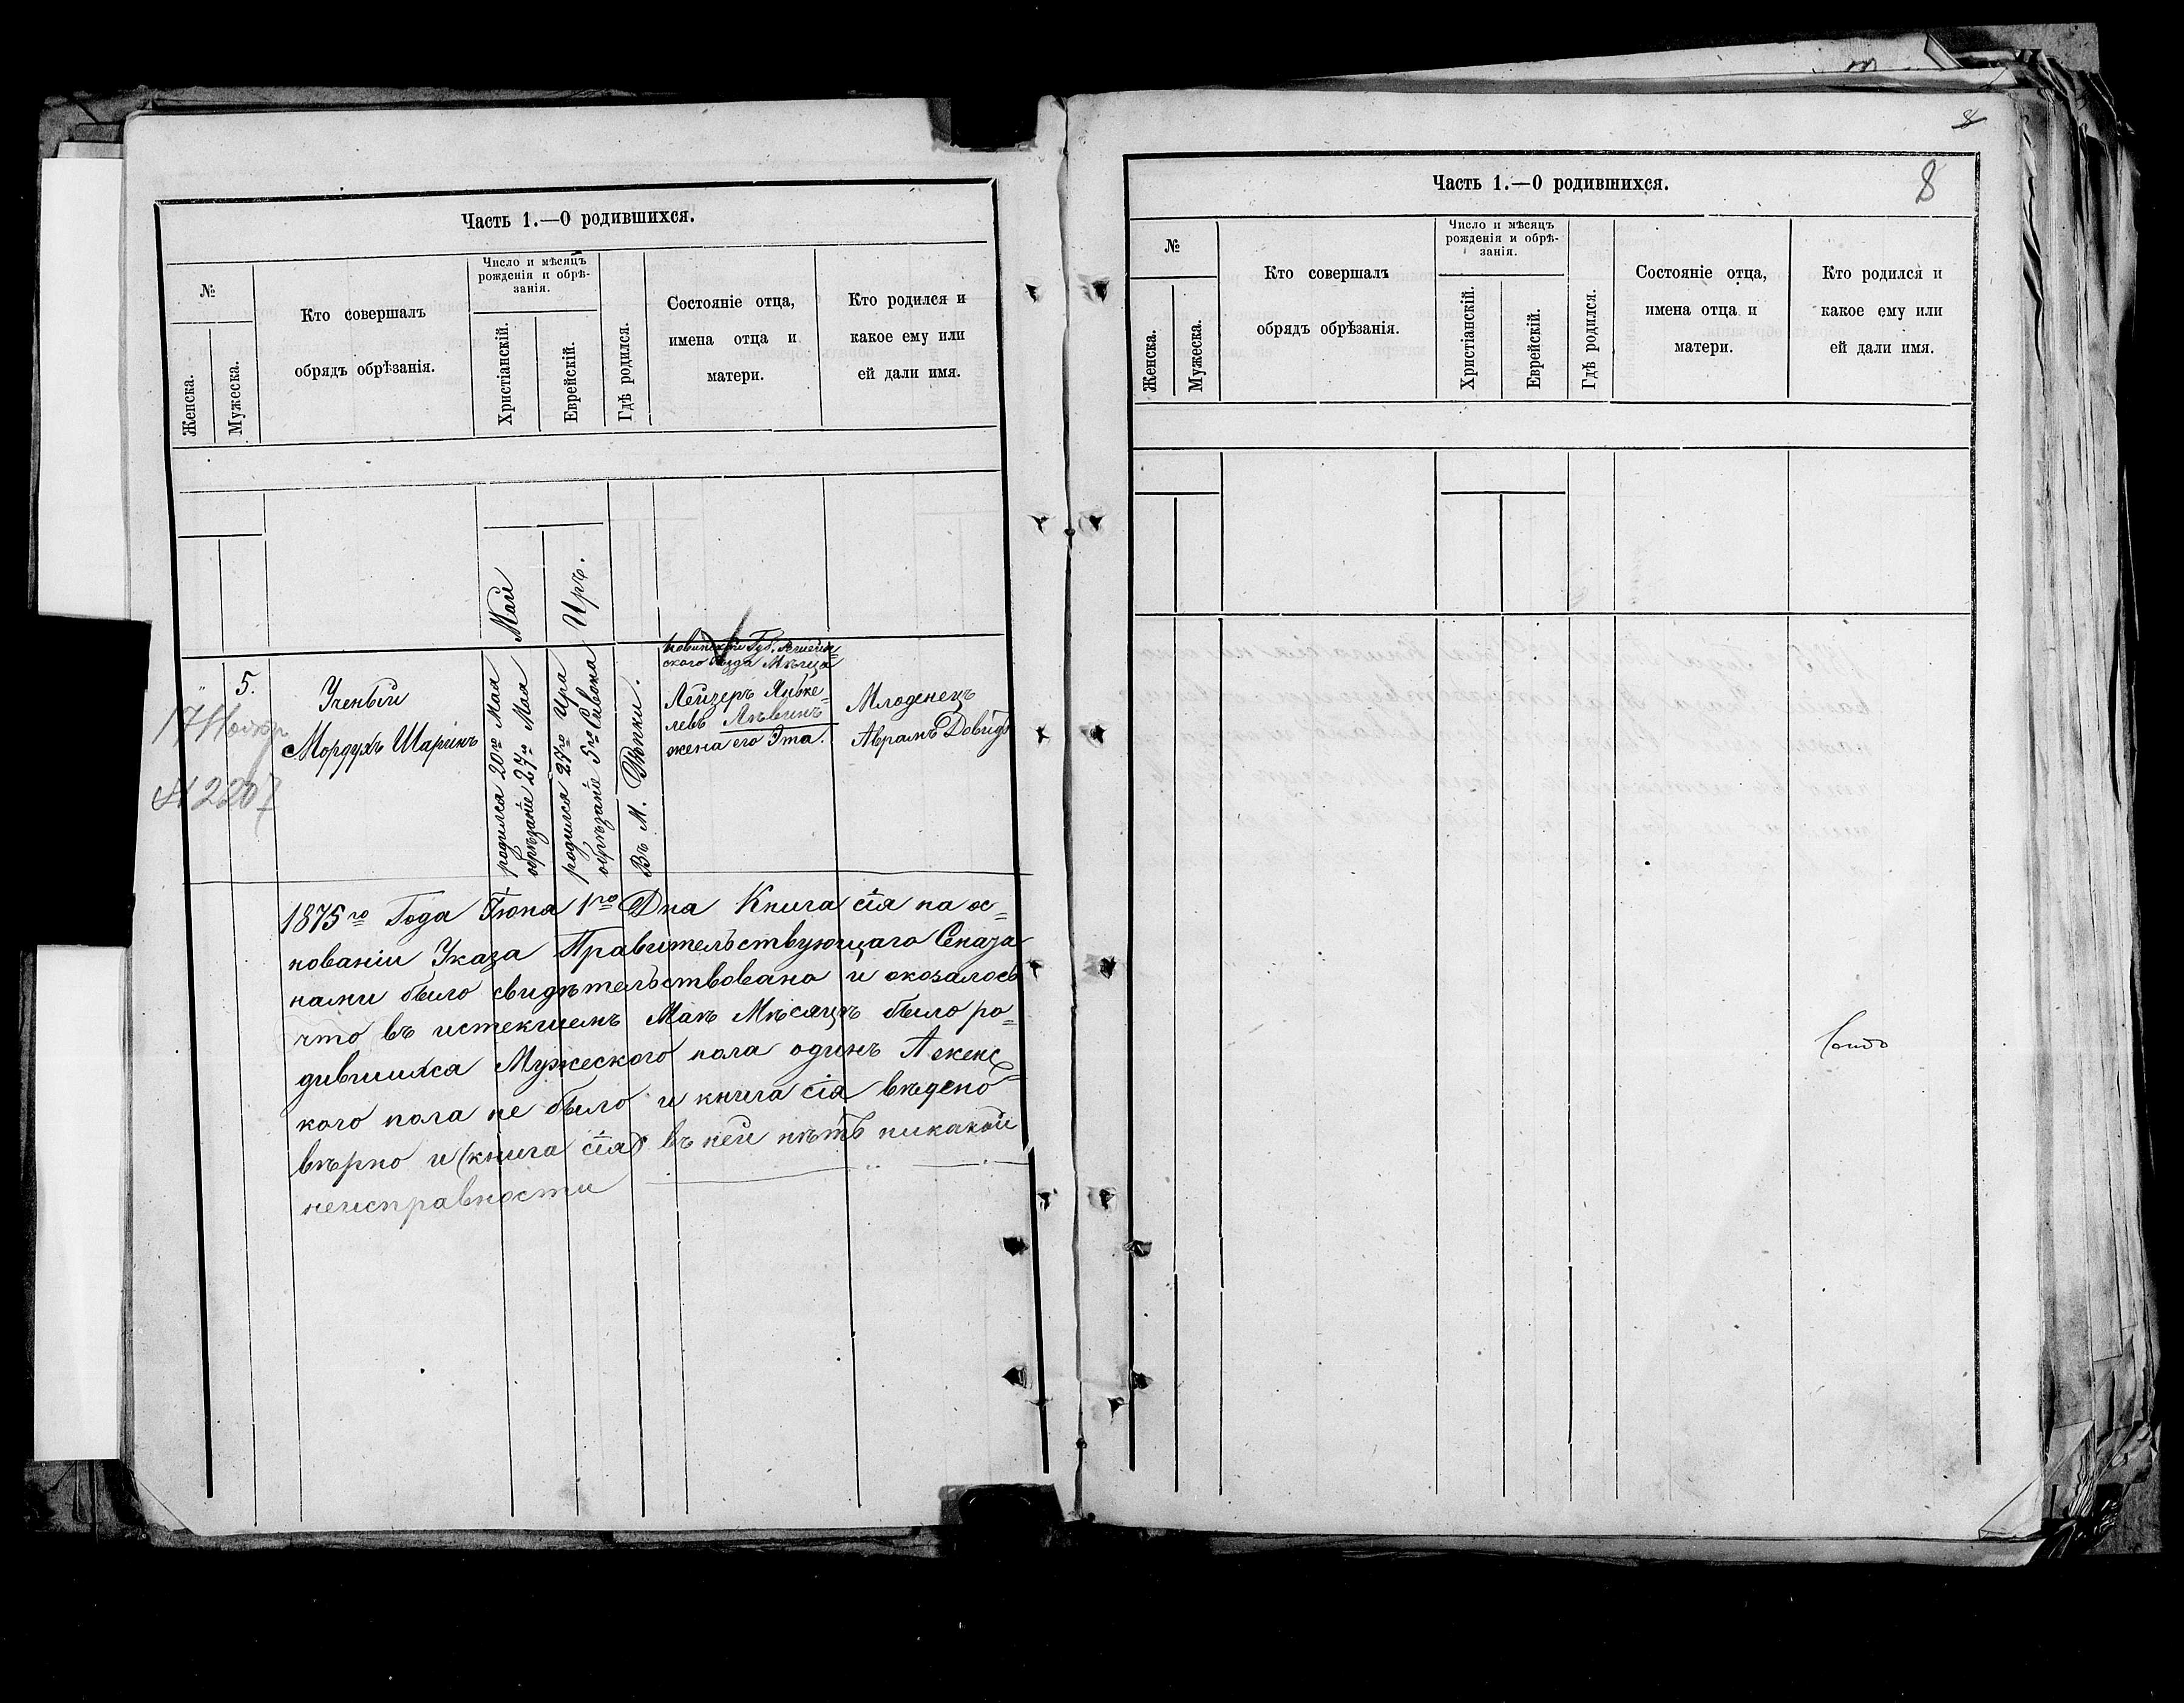 Часть 1.—О родившихся.
№
Женска.
Мужеска.
Кто совершалъ
обрядъ обрѣзанія.
Число и мѣсяцъ
рожденія и обрѣ-
занія.
Христіанскій.
Еврейскій.
Гдѣ родился.
Состояніе отца,
имена отца и
матери.
Кто родился и
какое ему или
ей дали имя.
Май
Иръ.
5.
Ученый
Мордухъ
родился 20го Мая
обрѣзаніе 27го Мая
родился 27го Ира
обрѣзаніе 5го Сивона
Въ М.
Губ.
ского уѣзда
Лейзеръ Янке=
левъ
жена его Эта.
Младенецъ
Абрамъ Довидъ
№ 2207
1875го Года Іюня 1го Дня Книга сія на ос=
нованіи Указа Правительствующаго Сената
нами было свидѣтельствована и оказалось
что въ истекшемъ Маѣ Мѣсяцѣ было ро=
дившихся Мужескаго пола одинъ А женс=
кого пола не было и книга сія ведено
вѣрно и (книга сія) въ ней нѣтъ никакой
неисправности
8
8
Часть 1.—О родившихся.
№
Женска.
Мужеска.
Кто совершалъ
обрядъ обрѣзанія.
Число и мѣсяцъ
рожденія и обрѣ-
занія.
Христіанскій.
Еврейскій.
Гдѣ родился.
Состояніе отца,
имена отца и
матери.
Кто родился и
какое ему или
ей дали имя.